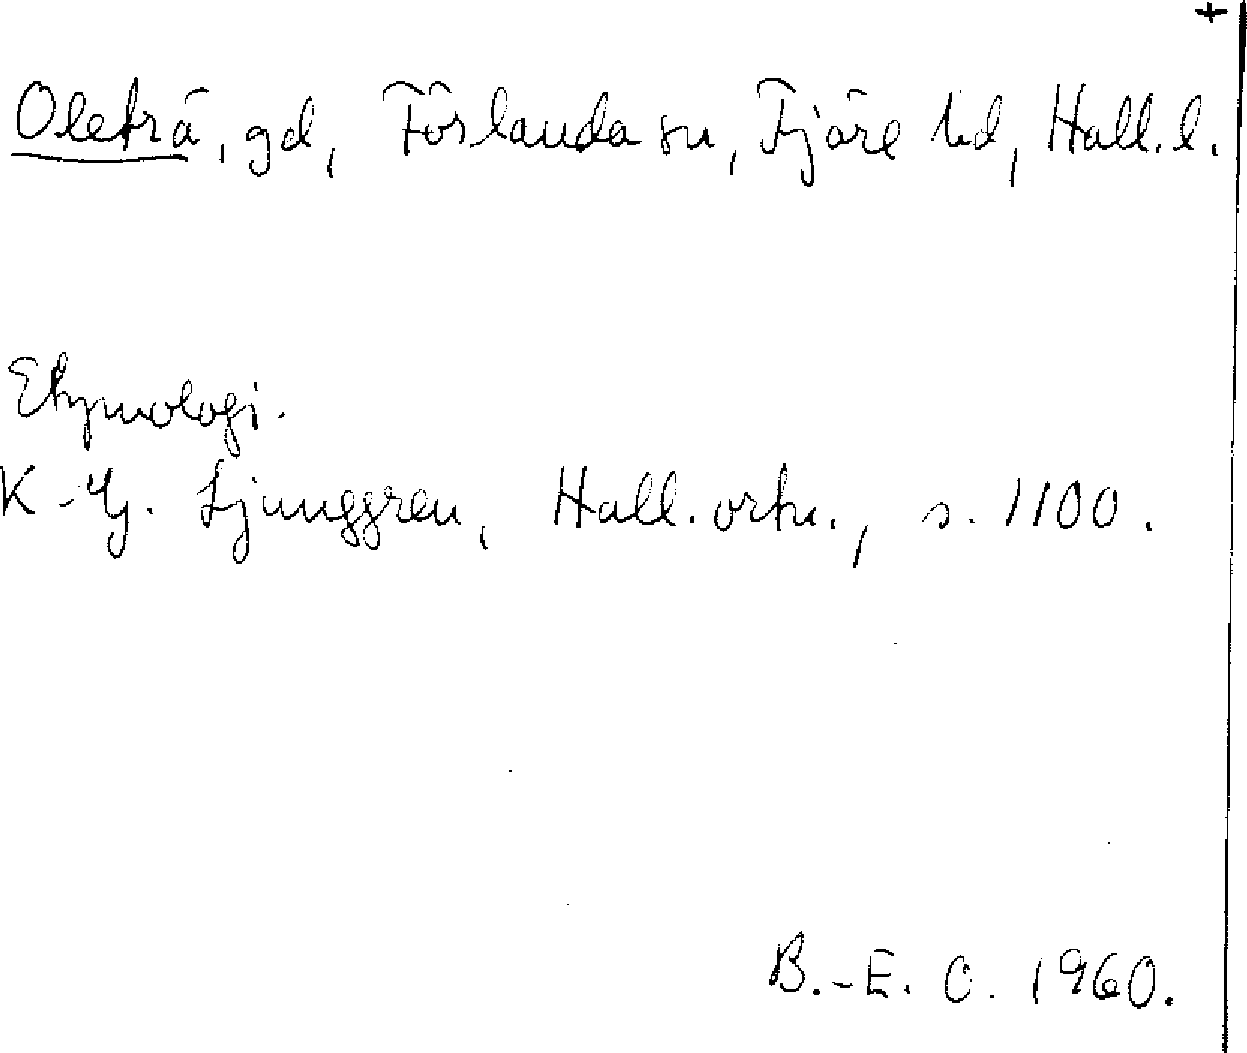 +
Oleträ, gd, Förlanda sn, Fjäre hd, Hall. l.
Etymologi.
K-G. Ljunggren, Hall. ortn., s. 1100.
B.-E. O. 1960.